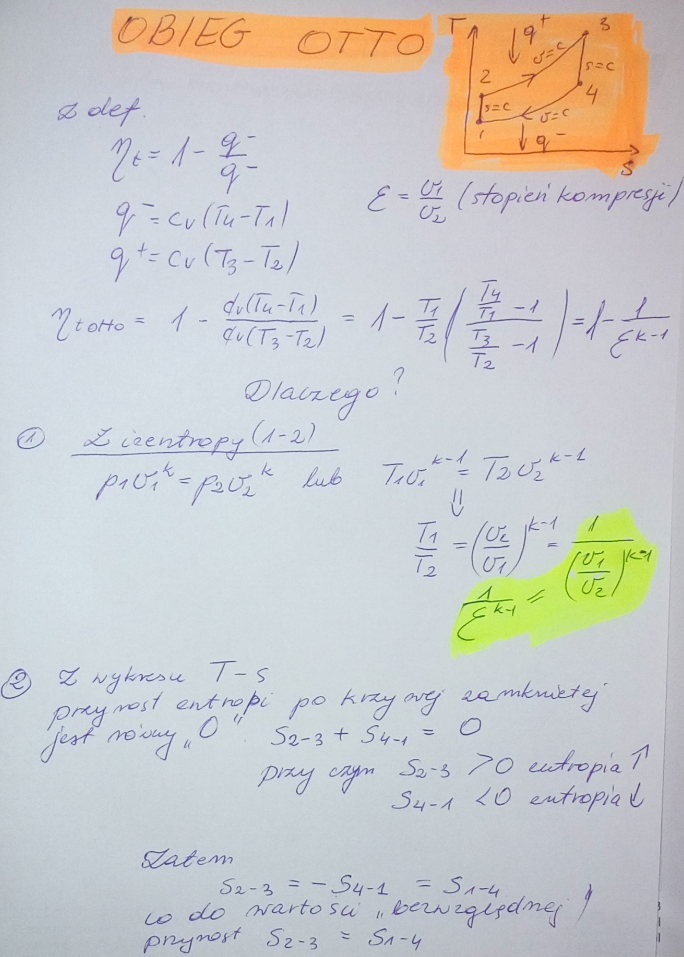 OBIEG OTTO
T q⁺ 3
v=c
2 s=c
s=c 4
v=c
1 q⁻
s
Z def.
ηt = 1 - q⁻/q⁻
q⁻ = cv(T4-T1)
q⁺ = cv(T3-T2)
ε = v1/v2 (stopień kompresji)
ηt otto = 1 - cv(T4-T1)/cv(T3-T2) = 1 - T1/T2 ((T4/T1 - 1)/(T3/T2 - 1)) = 1 - 1/ε^(k-1)
Dlaczego?
① Z izentropy (1-2)
p1v1^k = p2v2^k lub T1v1^(k-1) = T2v2^(k-1)
⇓
T1/T2 = (v2/v1)^(k-1) = 1/(v1/v2)^(k-1)
1/ε^(k-1) =
② Z wykresu T-s
przyrost entropi po krzywej zamknietej
jest równy „0" s2-3 + s4-1 = 0
przy czym s2-3 > 0 entropia ↑
s4-1 < 0 entropia ↓
Zatem
s2-3 = -s4-1 = s1-4
co do wartości „bezwzględnej"
przyrost s2-3 = s1-4